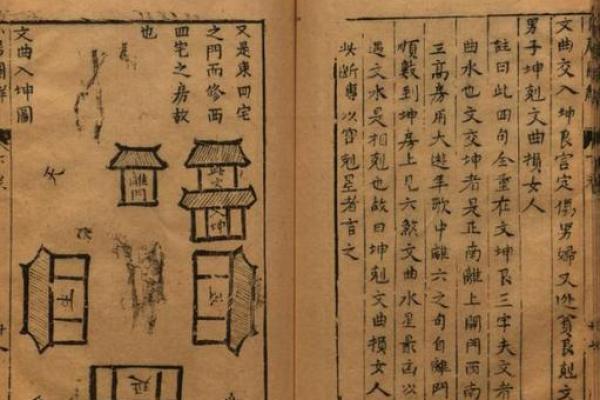 文曲交入坤艮宫定傷男婦又
貧艮剋文
男子坤剋文曲損女人
註曰此四句全重在文坤艮三字夫文者
曲水也文交坤者是正南離上開門西南
三高房用大遊年歌中離六之句自離門
順數到坤房上見六煞文曲水星最高以
遇文水是相剋也故曰坤剋文曲損女人
此斷專以宫剋星者言之
又是東四宅
之門而修西
四宅之房故
也
離門
文坤
文曲入坤圖